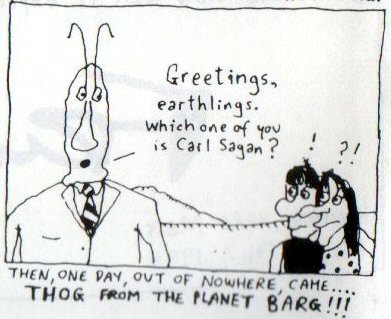 Greetings,
earthlings.
Which one of you
is Carl Sagan?
! ?!
THEN, ONE DAY, OUT OF NOWHERE, CAME....
THOG FROM THE PLANET BARG!!!